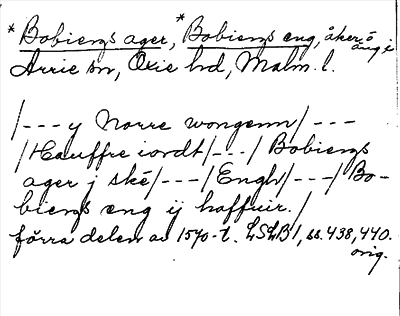 *Bobiergs ager, *Bobiergs eng, åker o äng i
Arrie sn, Oxie hd, Malm. l.
/---y Norre wongenn/---
/Hauffre iordt/---/Bobiergs
ager j ské/---/Engh/---/Bo-
biergs æng ij haffuir./
förra delen av 1570-t. LSLB1, ss. 438, 440.
orig.